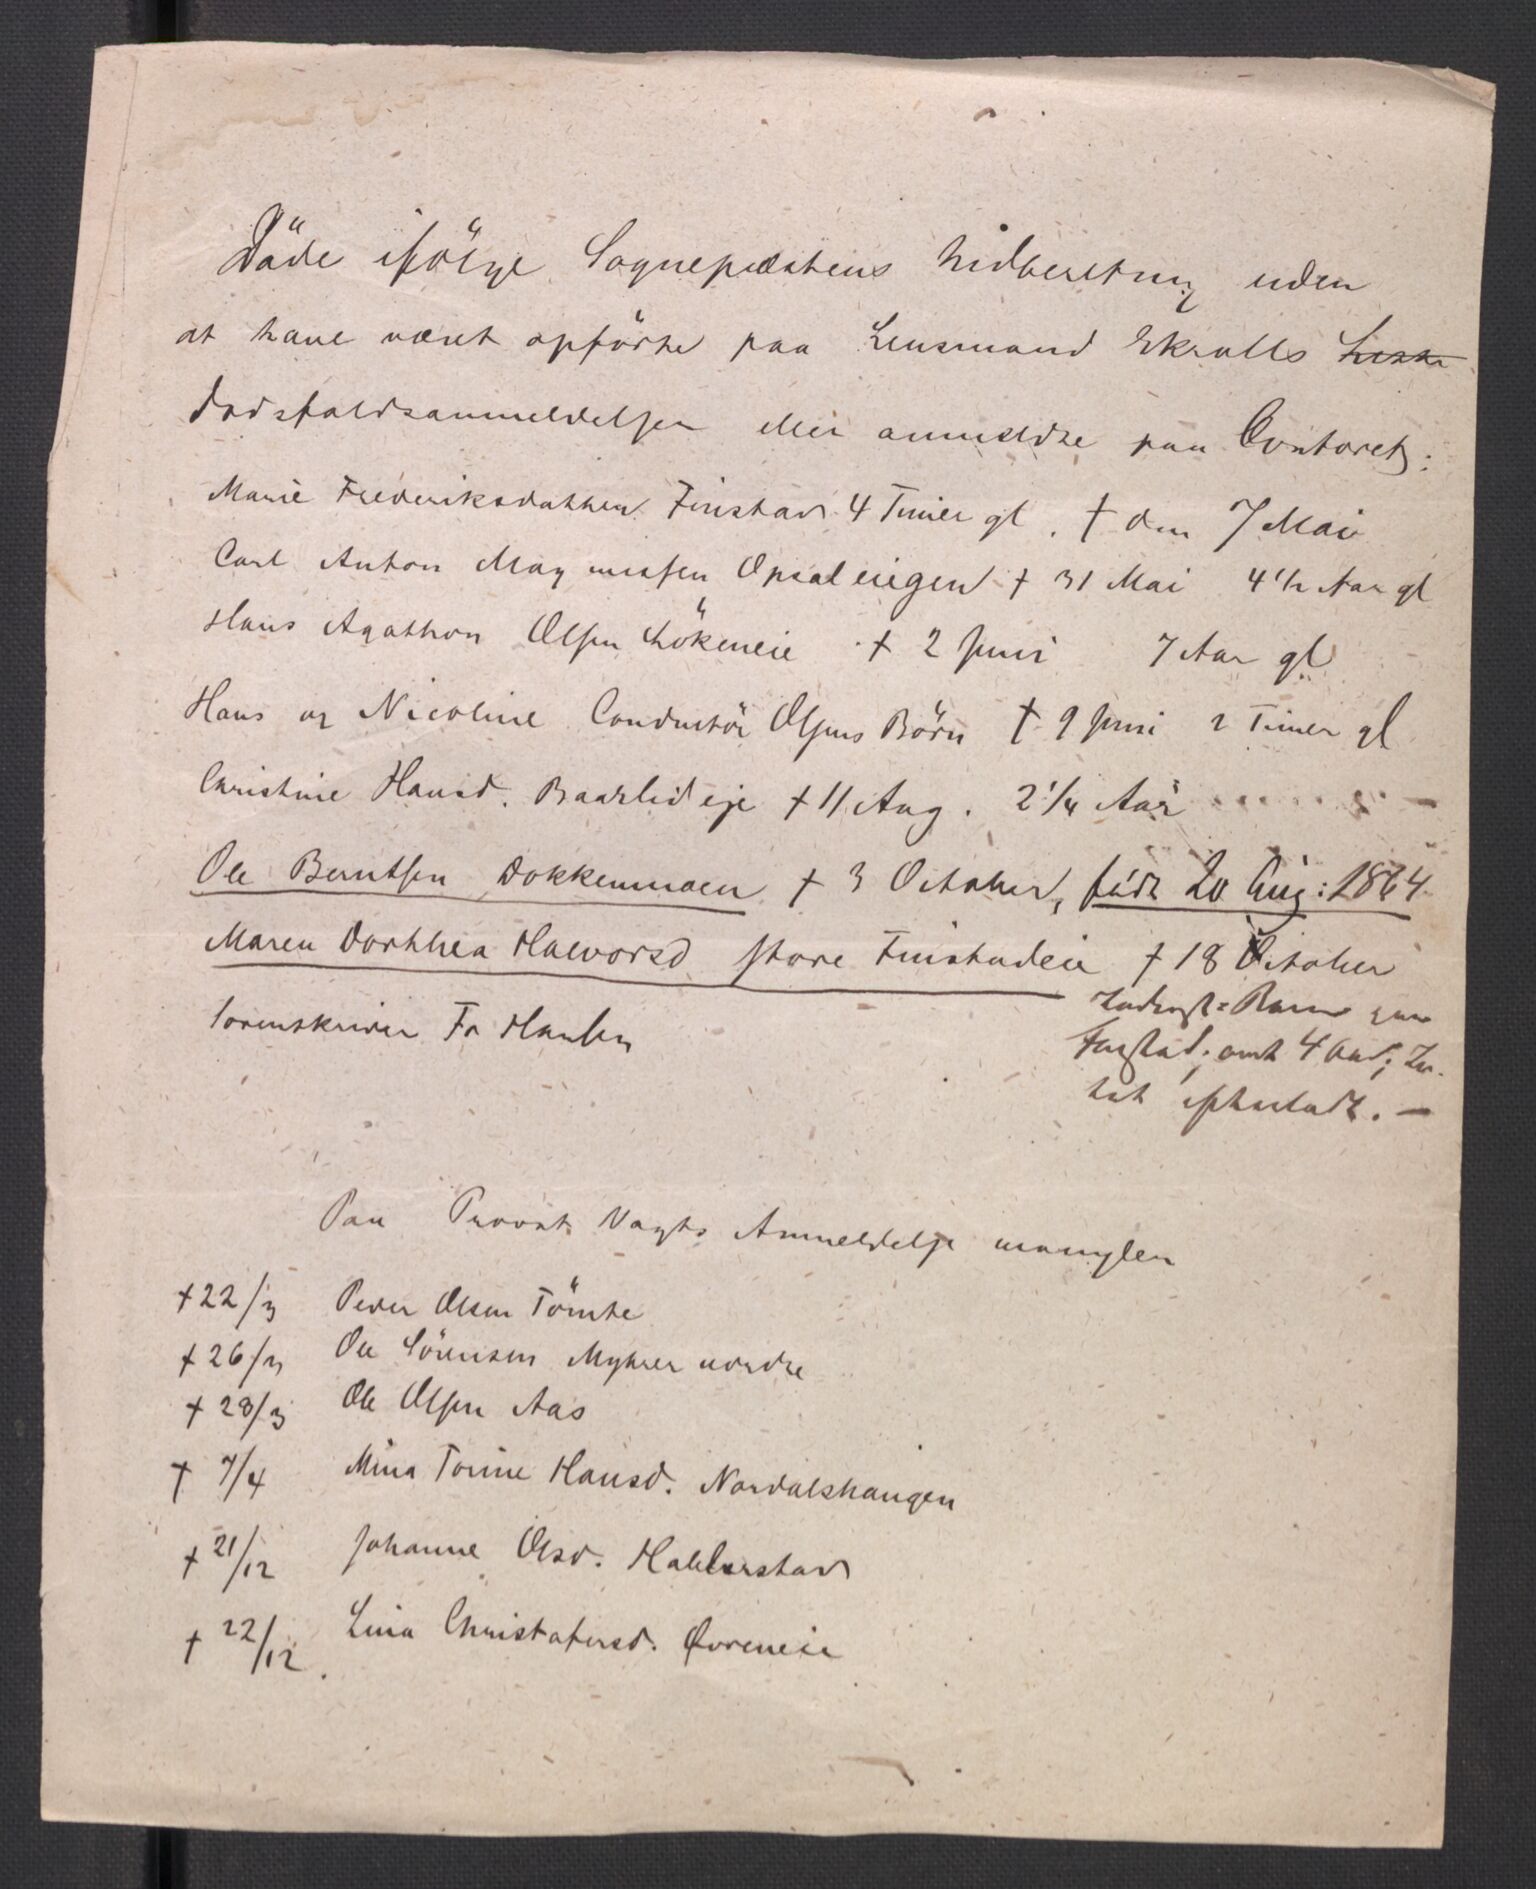 Döde ifölge Sognepræstens Indberetning uden
at have været opförte paa Lensmand Ekrolls Liste
Dødsfaldsanmeldelser eller anmeldte paa Contoret:
Marie Frederiksdatter Finstad 4 Timer gl. † den 7 Mai
Carl Anton Magnussen Opsaleiegen † 31 Mai 4 1/2 Aar gl
Hans Agathon Olsen Lökeneie † 2 Juni 7 Aar gl
Hans og Nicoline Conductör Olsens Börn † 9 Juni 2 Timer gl
Christine Hansd. Baarlideje † 11 Aug. 2 1/4 Aar
Ole Berntsen Dokkenmoen † 3 October, föd 20 Aug: 1864
Maren Dorthea Halvorsd store Finstadeie † 18 October
Barn
Finstad, omt 4 Aar;
efterladt. —
Sorenskriver Fr Hansen
Paa Provst Vogts Anmeldelse mangler
† 22/3 Peder Olsen Tömte
† 26/3 Ole Sörensen Myhrer nordre
† 28/3 Ole Olsen Aas
† 7/4 Mina Torine Hansd. Nordalshaugen
† 21/12 Johanne Olsd. Hallerstad
† 22/12. Lina Christofersd. Øvreneie